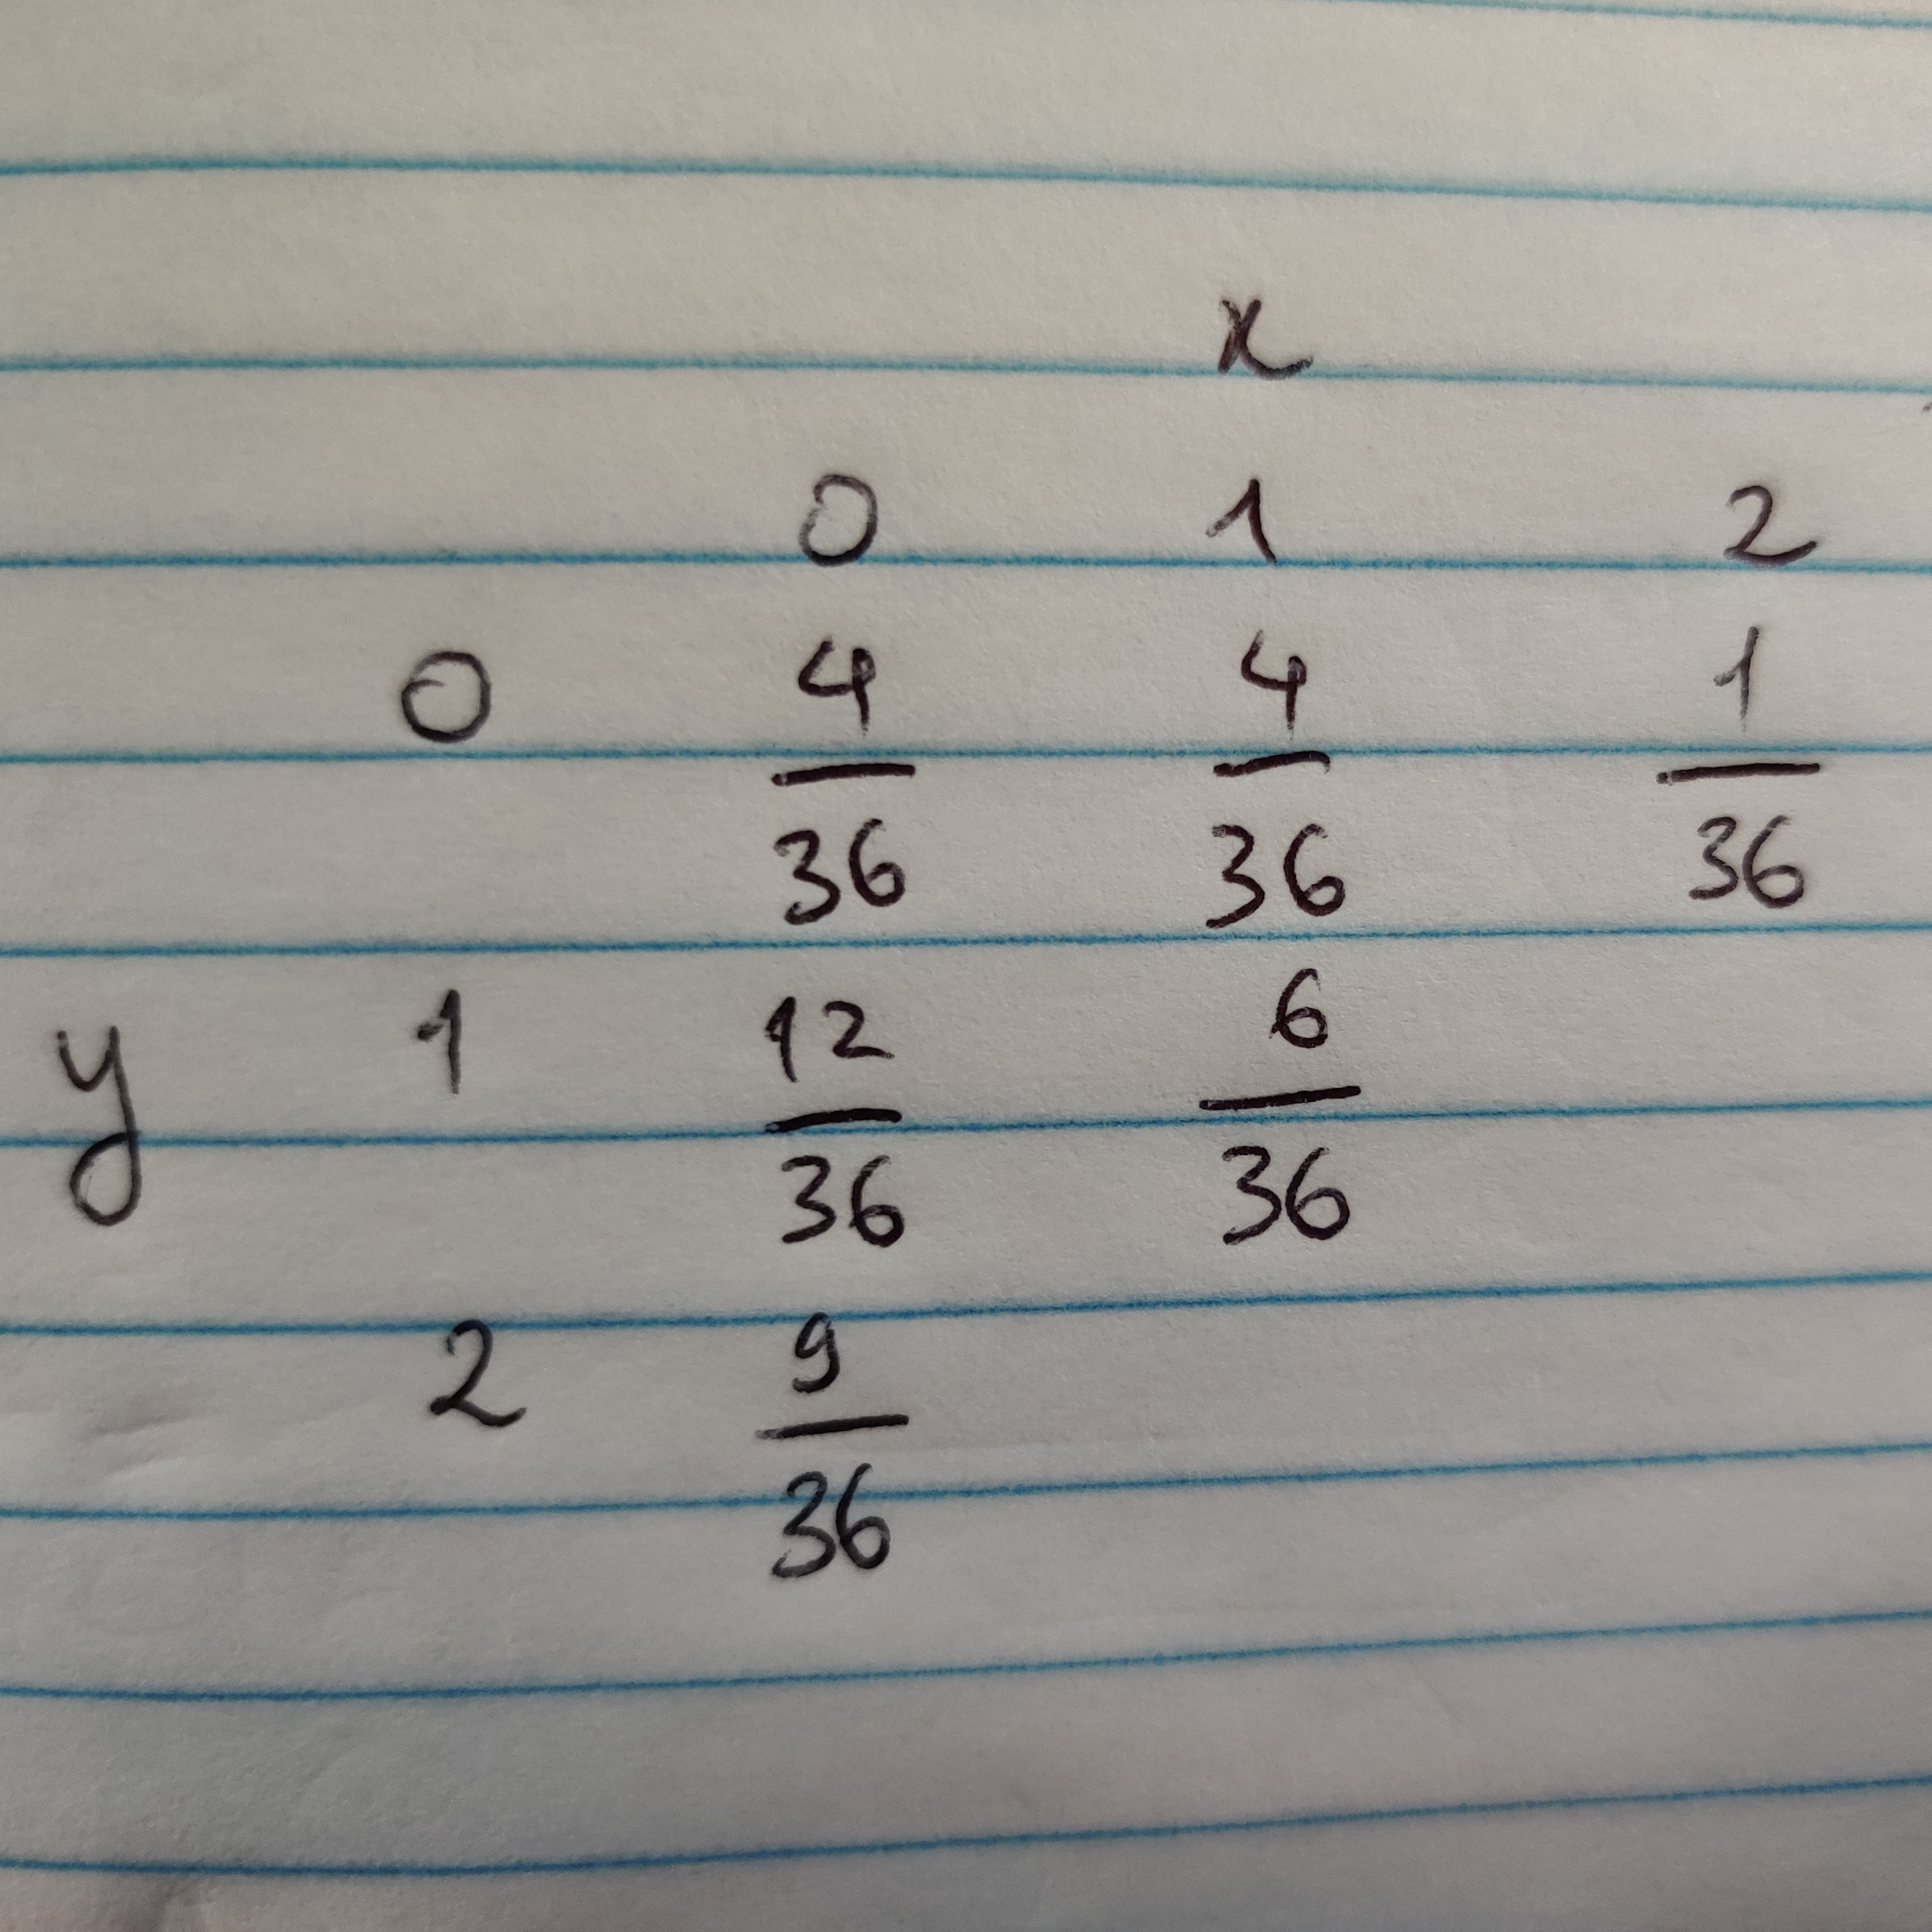 x
0 1 2
0 4/36 4/36 1/36
y 1 12/36 6/36
2 9/36